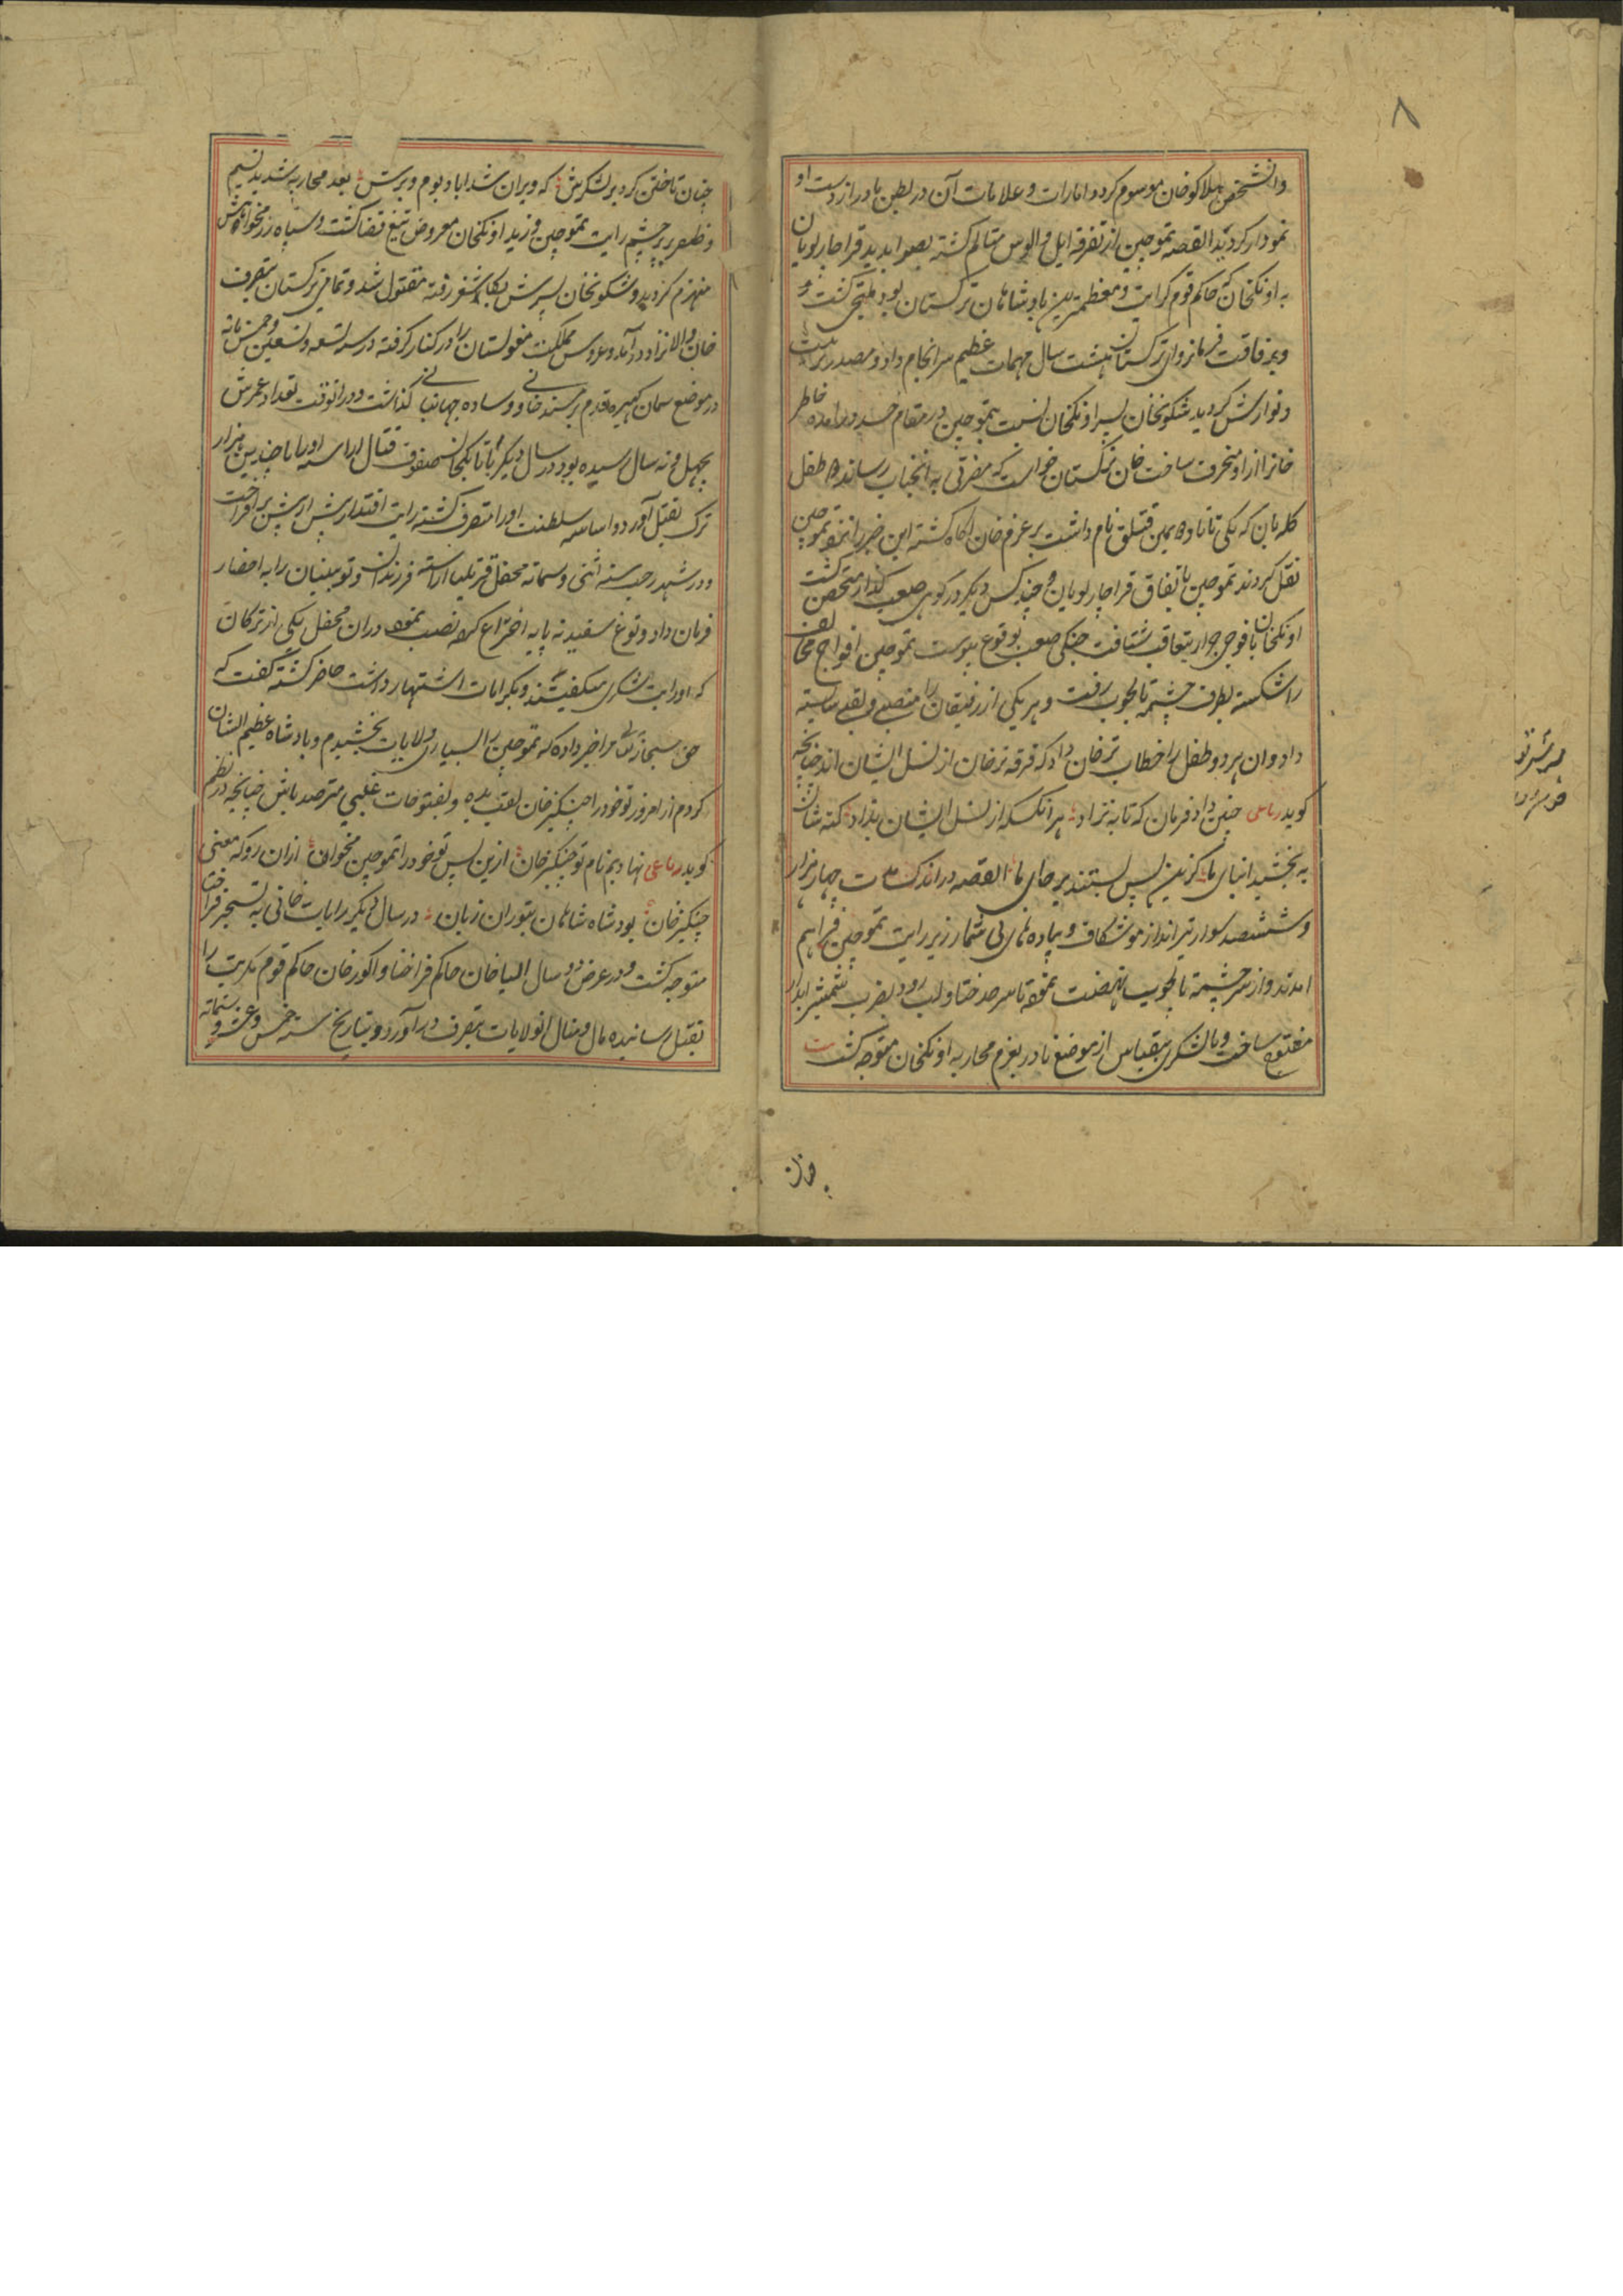 ۸
وان شخص بهلاکو خان موسوم کرد و امارات و علامات آن در بطن مادر از دست او
نمودار کردید القصه تموچین از تفرقه ایل و الوس متالم کشته بصوابدید قراجار نویان
به اونکخان که حاکم قوم کرایت و معظمترین پادشاهان ترکستان بود ملتجی کشت و
برفاقت فرمانروای ترکستان هشت سال مهمات عظیم سرانجام داد و مصدر تربیت
و نوازش کردید شنکونخان پسر اونکخان نسبت بتموچین در مقام حسد درامده خاطر
خانرا از او منحرف ساخت خان ترکستان خواست که مضرتی به انجناب رساند دو طفل
کله بان که یکی تاتا و دیمین قشلق نام داشت بر عزم خان اکاه کشته این خبر را نزد تموچین
نقل کردند تموچین باتفاق قراجار نویان و چند کس دیکر در کوهی صعب کذار متحصن کشت
اونکخان با فوجی جرار بتعاقب شتافت جنکی صعب بوقوع پیوست تموچین افواج مخالف
را شکسته بطرف چشمه بالجوب رفت و هر یکی از رفیقان را منصبی و لقبی شایسته
داد و ان هر دو طفل را خطاب ترخان داد که فرقه ترخان از نسل ایشان اند چنانچه
کوید رباعی چنین داد فرمان که تا به نژاد هر انکسکه از نسل ایشان بزاد کنه شان
به بخشید ابنای ما کزین پس نشستند بر جای ما القصه در اندک مدت چهار هزار
و ششصد سوار تیر انداز موشکاف و پیاده های بی شمار زیر رایت تموچین فراهم
امدند و از سر چشمه بالجوب نهضت نموده تا سرحد ختا و لب رود بضرب شمشیر ابدار
مفتوح ساخت و با لشکری بیقیاس از موضع نادر بعزم محاربه اونکخان متوجه کشت
چنان تاختن کرد بر لشکرش که ویران شد اباد بوم و برش بعد محاربه شدید نسیم
و ظفر بر پرچم رایت تموچین وزید اونکخان معروض تیغ قضا کشت و سپاه
منهزم کردید و شنکونخان پسرش بکاشغر رفته مقتول شد و تمامی ترکستان بتصرف
خان والا نژاد درآمد و عروس مملکت مغولستان را در کنار کرفته در سنه تسعه و تسعین و خمسمائه
در موضع سمان کهیره قدم بر مسند خانی و وساده جهانبانی کذاشت و در انوقت تعداد عمرش
بچهل و نه سال رسیده بود در سال دیکر با تایانکخان صفوف قتال اراسته او را با چندین هزار
ترک بقتل آورد و اساسه سلطنت او را متصرف کشته رایت اقتدارش پیش از پیش بر افراخت
و در شهر رجب سنه اثنی و ستمائه محفل قریلتا اراسته فرزندان و نوئینان را به احضار
فرمان داد و توغ سفید نه پایه اختراع کرده نصب نمود دران محفل یکی از ترکان
که او را بت تنکری میکفتند و بکرامات اشتهار داشت حاضر کشته کفت که
حق سبحانه تعالی مرا خبر داده که تموچین را بسیاری ولایات بخشیدم و پادشاه عظیم الشان
کردم از امروز تو خود را چنکیز خان لقب بده و بفتوحات غیبی مترصد باش چنانچه در نظم
کوید رباعی نهادیم نام تو چنکیز خان ازین پس تو خود را تموچین مخوان ازان رو که معنی
چنکیز خان بود شاه شاهان بتوران زبان در سال دیکر رایات خانی به تسخیر
متوجه کشت و در عرض دو سال الیاخان حاکم قراختا و اکور خان حاکم قوم مکریت را
بقتل رسانیده مال و منال انولایات بتصرف درآورد و بتاریخ سنه خمس و عشر و ستمائه